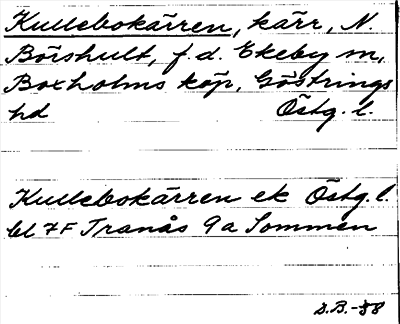 Kullebokärren, kärr, N.
Börshult, f.d. Ekeby sn,
Boxholms köp, Göstrings
hd Östg. l.
Kullebokärren ek Östg. l.
bl 7F Tranås 9a Sommen
S.B.-88